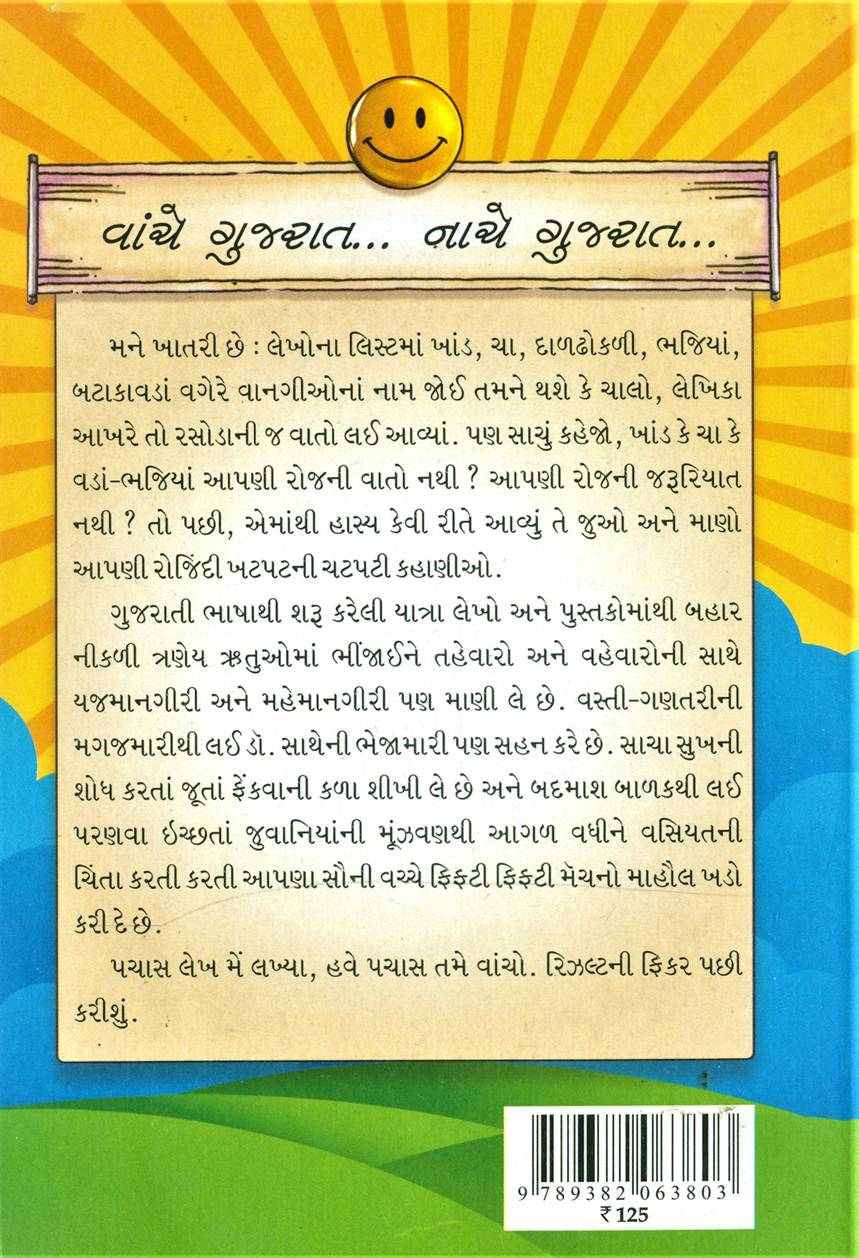 વાંચે ગુજરાત... નાચે ગુજરાત...
મને ખાતરી છે : લેખોના લિસ્ટમાં ખાંડ, ચા, દાળઢોકળી, ભજિયાં,
બટાકાવડાં વગેરે વાનગીઓનાં નામ જોઈ તમને થશે કે ચાલો, લેખિકા
આખરે તો રસોડાની જ વાતો લઈ આવ્યાં. પણ સાચું કહેજો, ખાંડ કે ચા કે
વડાં-ભજિયાં આપણી રોજની વાતો નથી ? આપણી રોજની જરૂરિયાત
નથી ? તો પછી, એમાંથી હાસ્ય કેવી રીતે આવ્યું તે જુઓ અને માણો
આપણી રોજિંદી ખટપટની ચટપટી કહાણીઓ.
ગુજરાતી ભાષાથી શરૂ કરેલી યાત્રા લેખો અને પુસ્તકોમાંથી બહાર
નીકળી ત્રણેય ઋતુઓમાં ભીંજાઈને તહેવારો અને વહેવારોની સાથે
યજમાનગીરી અને મહેમાનગીરી પણ માણી લે છે. વસ્તી-ગણતરીની
મગજમારીથી લઈ ડૉ. સાથેની ભેજામારી પણ સહન કરે છે. સાચા સુખની
શોધ કરતાં જૂતાં ફેંકવાની કળા શીખી લે છે અને બદમાશ બાળકથી લઈ
પરણવા ઇચ્છતાં જુવાનિયાંની મૂંઝવણથી આગળ વધીને વસિયતની
ચિંતા કરતી કરતી આપણા સૌની વચ્ચે ફિફ્ટી ફિફ્ટી મૅચનો માહૌલ ખડો
કરી દે છે.
પચાસ લેખ મેં લખ્યા, હવે પચાસ તમે વાંચો. રિઝલ્ટની ફિકર પછી
કરીશું.
9 789382 063803
₹ 125